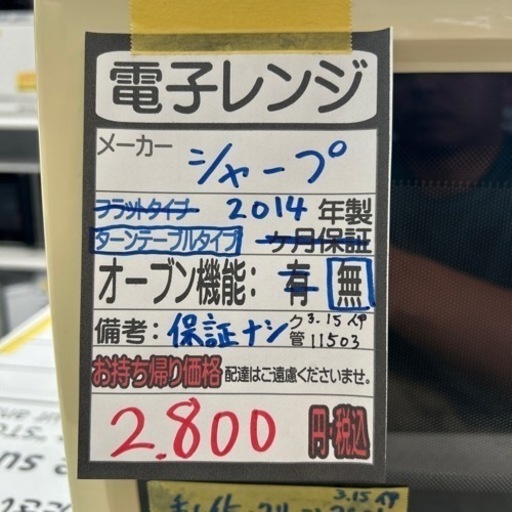 電子レンジ
メーカー シャープ
フラットタイプ 2014年製
ターンテーブルタイプ ケ月保証
オーブン機能：有 無
備考：保証ナシ ク 3.15
管 11503
お持ち帰り価格 配達はご遠慮くださいませ。
2.800 円・税込
3.15